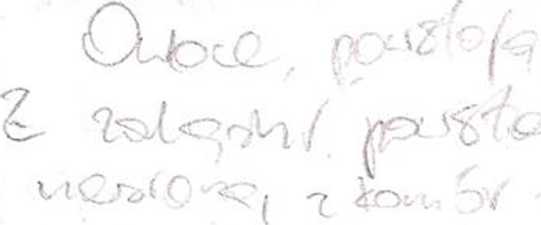 Owoce, powstają
z zalążni. powsta
nasiona, z komór